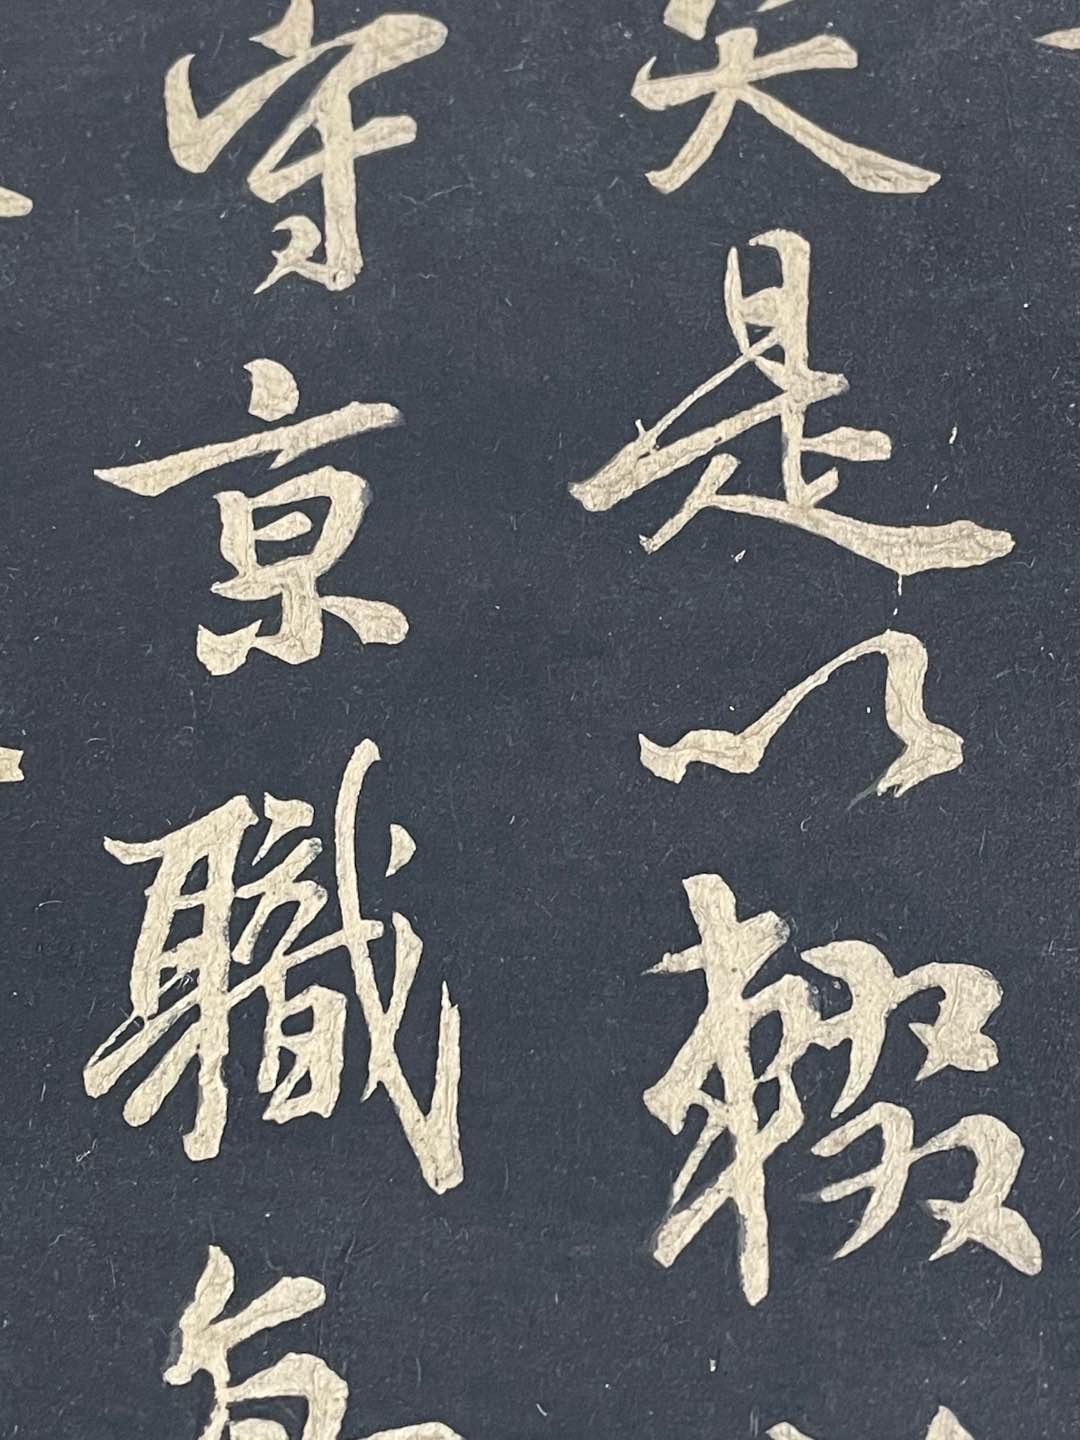 矣是以輟
守京職